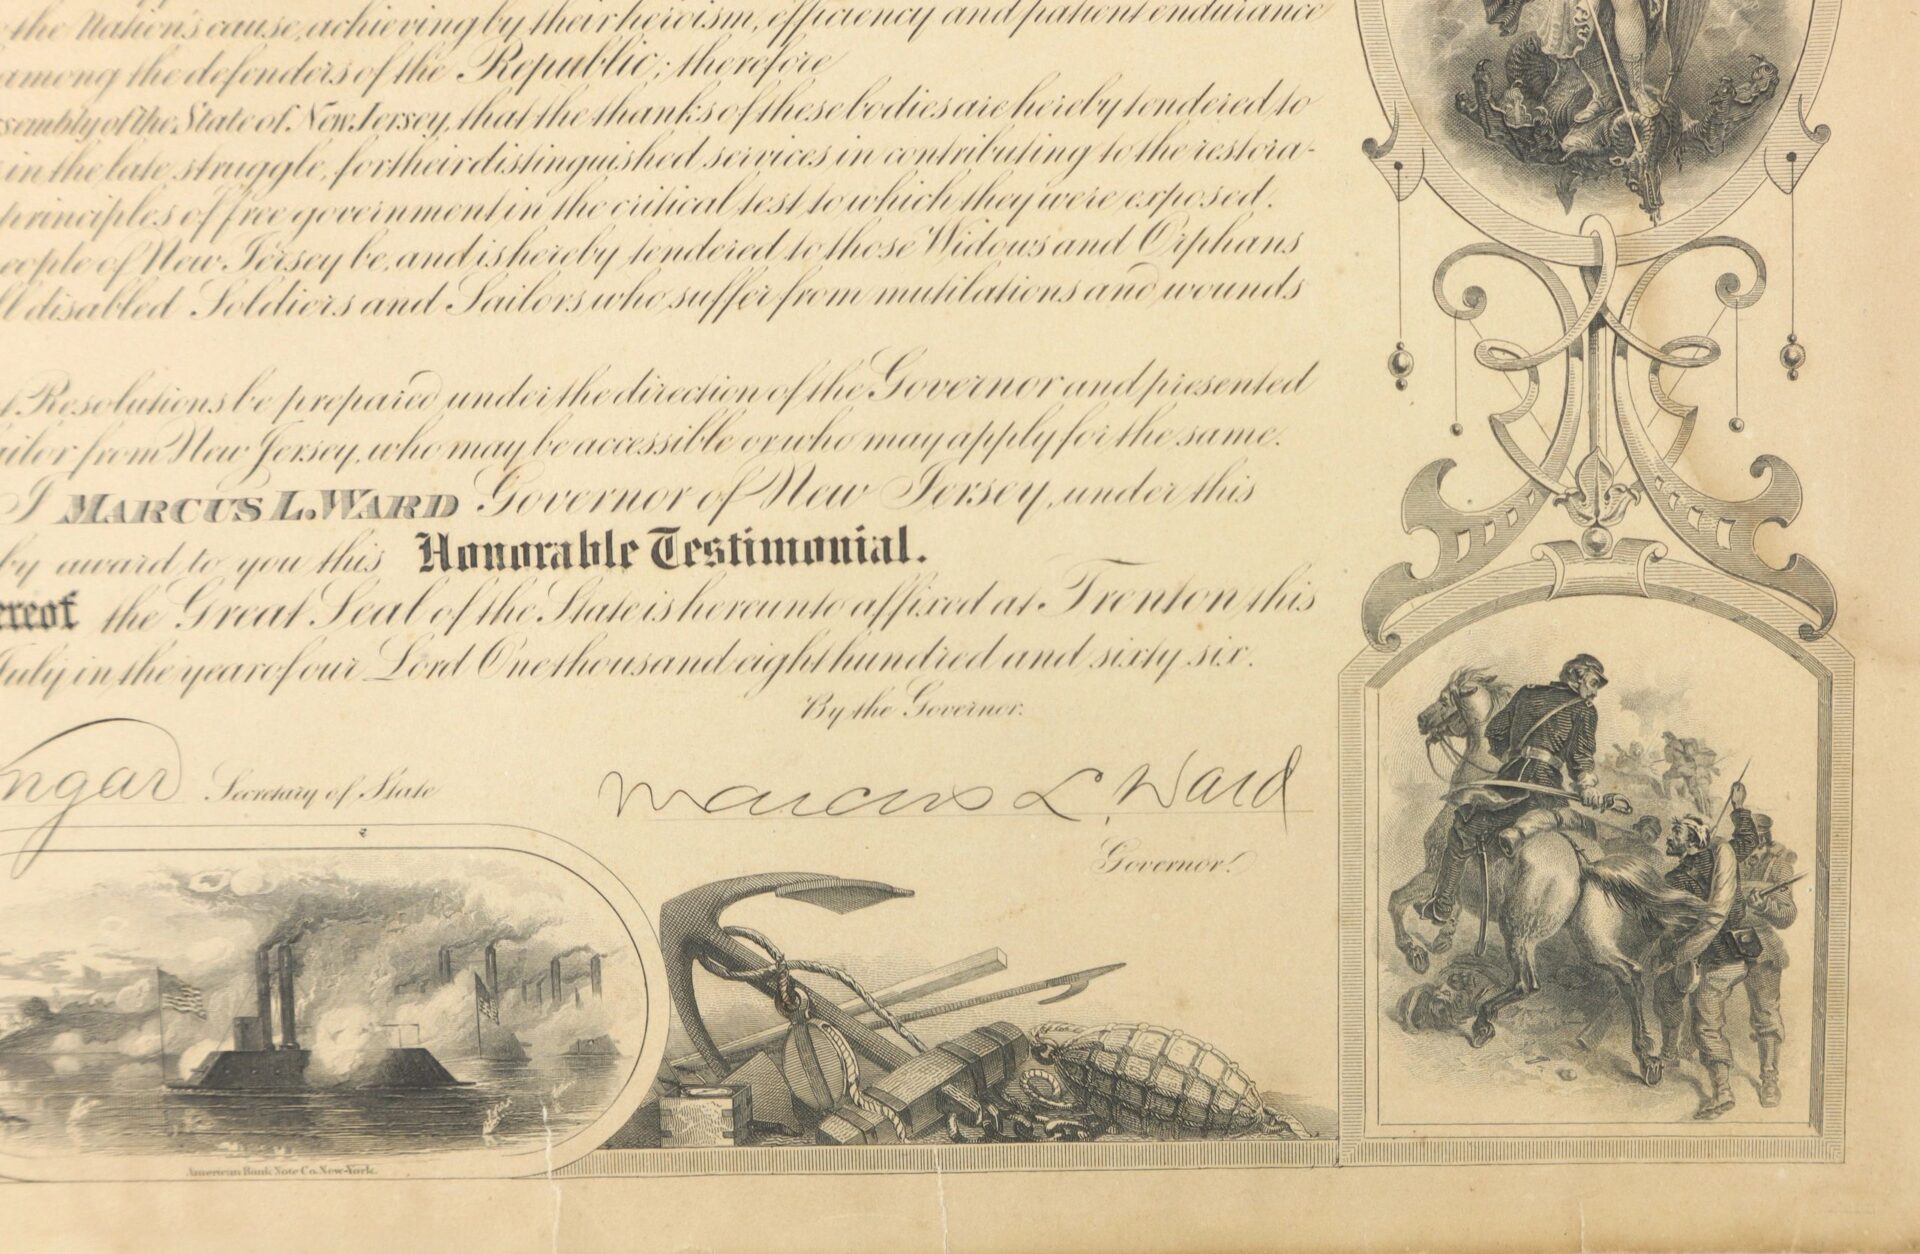 the Nation's cause, achieving by their heroism, efficiency and patient endurance
among the defenders of the Republic; therefore
ssembly of the State of New Jersey, that the thanks of these bodies are hereby tendered to
in the late struggle, for their distinguished services in contributing to the restora-
principles of free government in the critical test to which they were exposed.
eople of New Jersey be, and is hereby tendered to those Widows and Orphans
ll disabled Soldiers and Sailors who suffer from mutilations and wounds
t Resolutions be prepared under the direction of the Governor and presented
ailor from New Jersey, who may be accessible or who may apply for the same.
I MARCUS L. WARD Governor of New Jersey, under this
by award to you this Honorable Testimonial.
ereof the Great Seal of the State is hereunto affixed at Trenton this
July in the year of our Lord One thousand eight hundred and sixty six.
By the Governor.
ngar Secretary of State
Marcus L. Ward
Governor.
American Bank Note Co. New-York.